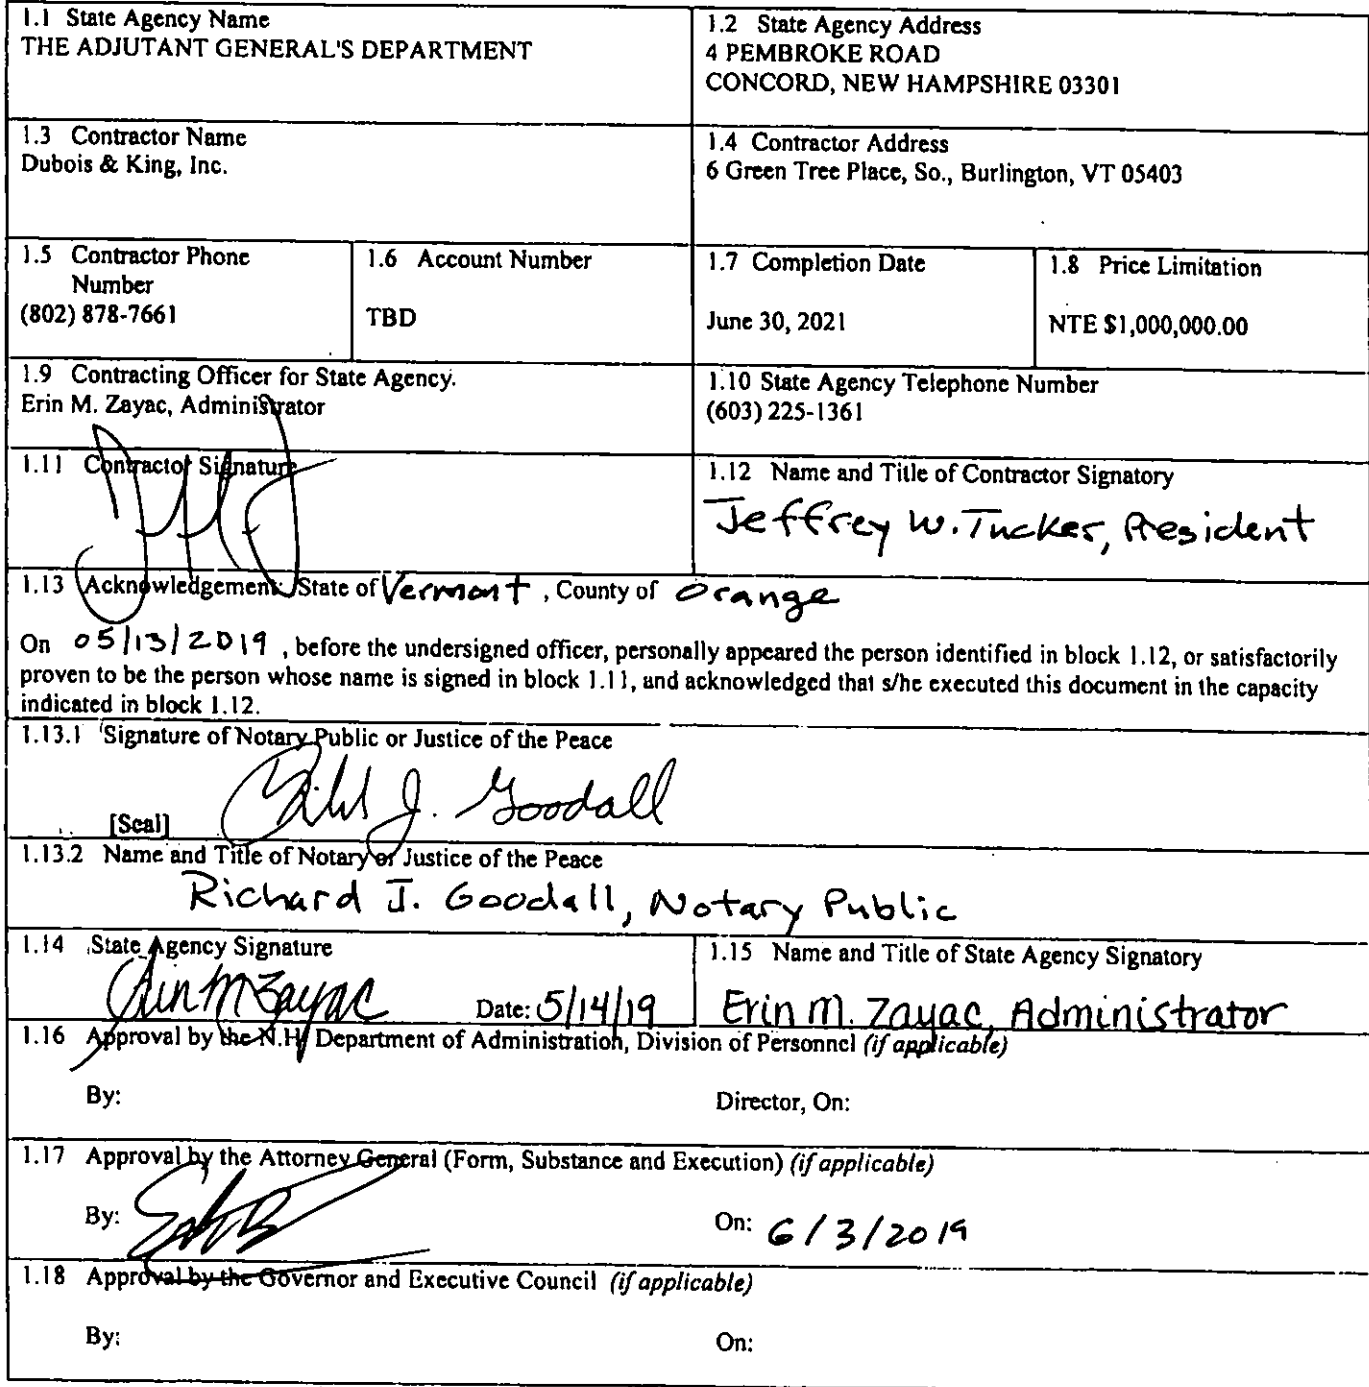 1.1 State Agency Name
THE ADJUTANT GENERAL'S DEPARTMENT
1.2 State Agency Address
4 PEMBROKE ROAD
CONCORD, NEW HAMPSHIRE 03301
1.3 Contractor Name
Dubois & King, Inc.
1.4 Contractor Address
6 Green Tree Place, So., Burlington, VT 05403
1.5 Contractor Phone
Number
(802) 878-7661
1.6 Account Number
TBD
1.7 Completion Date
June 30, 2021
1.8 Price Limitation
NTE $1,000,000.00
1.9 Contracting Officer for State Agency.
Erin M. Zayac, Administrator
1.10 State Agency Telephone Number
(603) 225-1361
1.11 Contractor Signature
1.12 Name and Title of Contractor Signatory
Jeffrey W. Tucker, President
1.13 Acknowledgement: State of Vermont, County of Orange
On 05/13/2019, before the undersigned officer, personally appeared the person identified in block 1.12, or satisfactorily
proven to be the person whose name is signed in block 1.11, and acknowledged that s/he executed this document in the capacity
indicated in block 1.12.
1.13.1 Signature of Notary Public or Justice of the Peace
J. Goodall
[Seal]
1.13.2 Name and Title of Notary or Justice of the Peace
Richard J. Goodall, Notary Public
1.14 State Agency Signature
Erin M Zayac Date: 5/14/19
1.15 Name and Title of State Agency Signatory
Erin M. Zayac, Administrator
1.16 Approval by the N.H. Department of Administration, Division of Personnel (if applicable)
By: Director, On:
1.17 Approval by the Attorney General (Form, Substance and Execution) (if applicable)
By: On: 6/3/2019
1.18 Approval by the Governor and Executive Council (if applicable)
By: On: